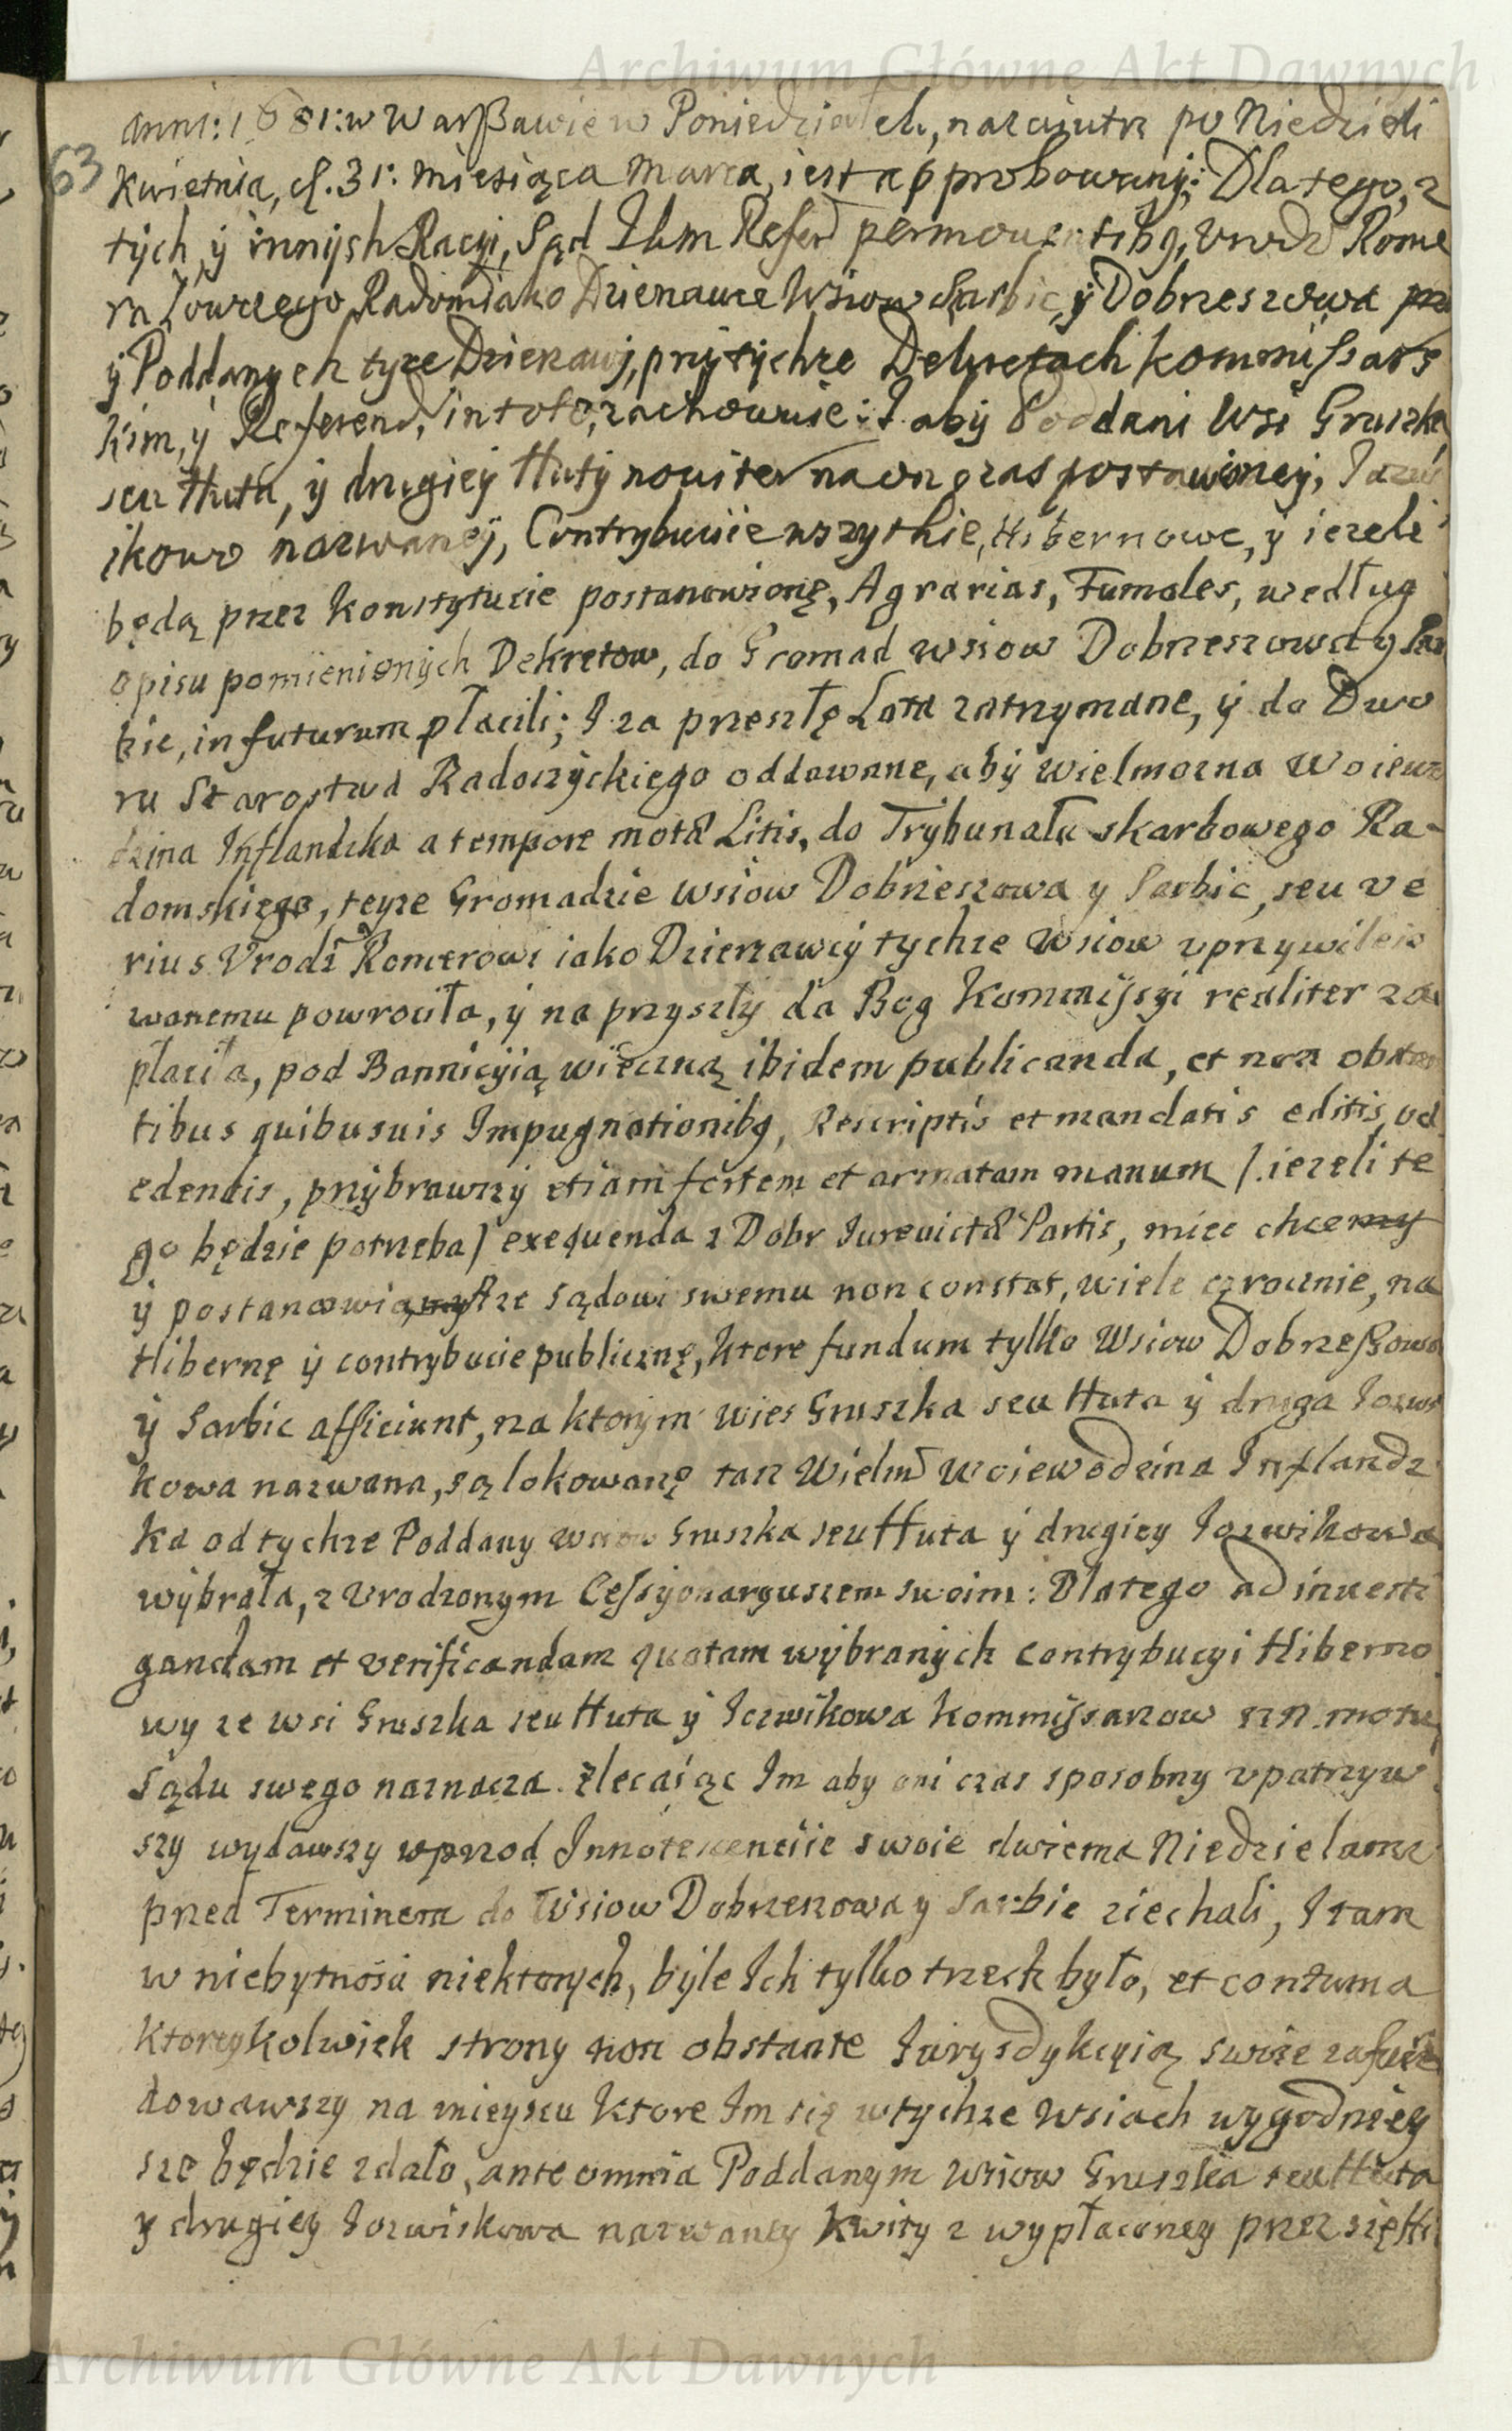 Archiwum Główne Akt Dawnych
anni: 1681: w Warßawie w Poniedziałek, nazaiutrz po Niedzieli
63
Kwietnia, d. 31: Miesiąca Marca, iest approbowany; Dlatego, z
tych y innysh Racyi, Sąd IKm Refer permouentibg, Vrodz Rome
ra Łowczego Radom iako Dzierzawce Wsiow Sarbic, y Dobrzeszowa
y Poddanych tyze Dzierzawy, przy tychze Dekretach Kommissars
kim, y Referend, in toto, zachowuie: I aby Poddani Wsi Gruszka
seu Huta, y drugiey Huty nouiter na on czas postawioney, Jozw
ikowo nazwaney, Contrybucie wszytkie, Hibernowe, y iezeli
będą przez Konstytucie postanowionę, Agrarias, Fumales, według
opisu pomienionych Dekretow, do Gromad wsiow Dobrzeszowa y Sar
bic, in futurum płacili; I za przeszłę Lata zatrzymane, y do Dwo
ru Starostwa Radoszyckiego oddawane, aby Wielmozna Woiewo
dzina Inflandzka a tempore motæ Litis, do Trybunału skarbowego Ra-
domskiego, teyze Gromadzie wsiow Dobrzeszowa y Sarbic, seu ve
rius Vrodz Romerowi iako Dzierzawcy tychze wsiow vprzywileio
wanemu powrociła, y na przyszły da Bog Kommissyi realiter za
płaciła, pod Bannicyią wieczną ibidem publicanda, et non obstan
tibus quibusuis Impugnationibg, Rescriptis et mandatis editis, vel
edendis, przybrawszy etiam fortem et armatam manum /.iezeli te
go będzie potrzeba/ exequenda z Dobr Iurevictæ Partis, miec chcemy
y postanowia A ze sądowi swemu non constat, wiele co rocznie, na
Hibernę y contrybucie publicznę, ktore fundum tylko Wsiow Dobrzeßowa
y Sarbic afficiunt, na ktorym wies Gruszka seu Huta y druga Jozwi
kowa nazwana, są lokowanę taz Wielm Woiewodzina Inflandz
ka od tychze Poddany wsiow Gruszka seu Huta y drugiey Jozwikowa
wybrała, z Vrodzonym Cessyonaryuszem swoim: Dlatego ad inuesti
gandam et verificandam quotam wybranych contrybucyi Hiberno
wy ze wsi Gruszka seu Huta y Jozwikowa Kommissarzow motu
sądu swego naznacza. Zlecaiąc Im aby oni czas sposobny vpatrzyw
szy wydawszy wprzod Innotescencie swoie dwiema Niedzielami
przed Terminem do Wsiow Dobrzeszowa y Sarbic ziechali, I tam
w niebytnosci niektorych, byle Ich tylko trzech było, et contuma
ktoreykolwiek strony non obstante Iurysdykcyią swoie zafun
dowawszy na mieyscu ktore Im się w tychze Wsiach wygodniey
sze będzie zdało, ante omnia Poddanym wsiow Gruszka seu Huta
y drugiey Jozwikowa nazwaney Kwity z wypłaconey przez się Hi
Archiwum Główne Akt Dawnych